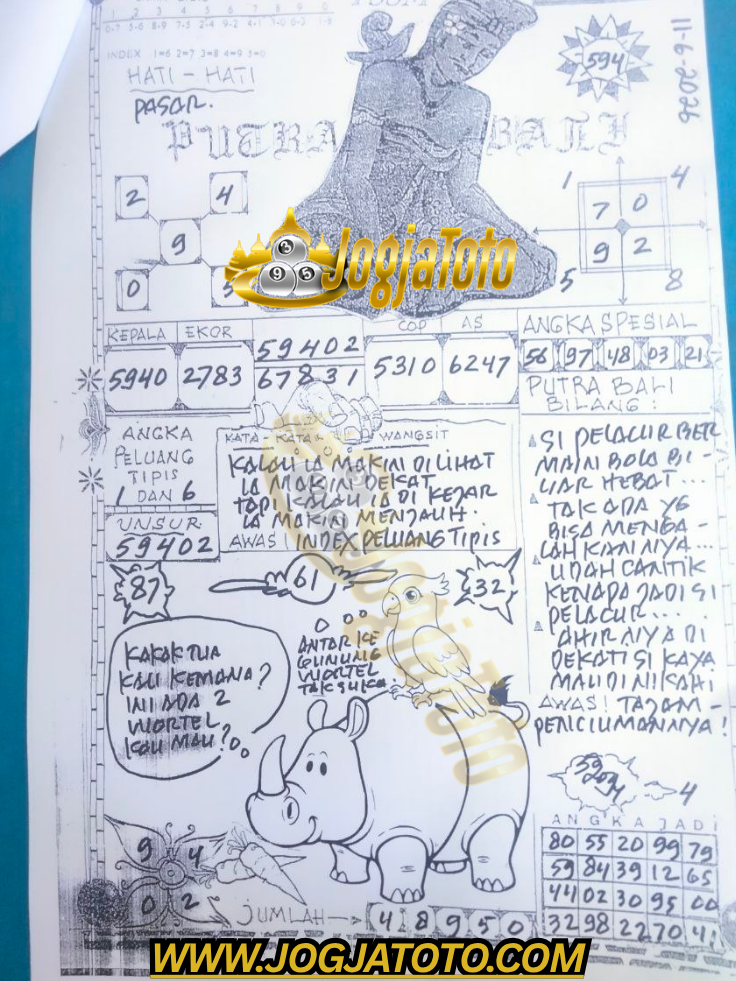 1 2 3 4 5 6 7 8 9 0
0-7 5-8 8-9 7-5 2-4 9-2 4-1 3-0 6-3 1-8
INDEX 1=6 2=7 3=8 4=9 5=0
HATI - HATI
PASAR.
594
11-6-2026
PUTRA BALI
2 4
9
0
1 4
7 0
9 2
5 8
JogjaToto
KEPALA EKOR COP AS ANGKA SPESIAL
5940 2783 59402 67831 5310 6247
56 97 48 03 21
PUTRA BALI
BILANG :
ANGKA
PELUANG
TIPIS
1 DAN 6
UNSUR
59402
KATA - KATA WANGSIT
KALAU IA MAKIN DILIHAT
IA MAKIN DEKAT
TAPI KALAU IA DI KEJAR
IA MAKIN MENJAUH.
AWAS! INDEX PELUANG TIPIS
SI PELACUR BER
MAIN BOLA BI -
LIAR HEBAT...
TAK ADA YG
BISA MENGA -
LAHKANNYA...
UDAH CANTIK
KENAPA JADI SI
PELACUR....
AHIRNYA DI
DEKATI SI KAYA
MAU DINIKAHI
AWAS! TAJAM -
PENCIUMANNYA!
87
61
32
KAKAK TUA
KAU KEMANA?
INI ADA 2
WORTEL
KAU MAU?
ANTAR KE
GUNUNG
WORTEL
TAK SUKA
JogjaToto
9 4
0 2
JUMLAH 4 8 9 5 0
4
ANGKA JADI
80 55 20 99 79
59 84 39 12 65
44 02 30 95 00
32 98 22 70 41
WWW.JOGJATOTO.COM